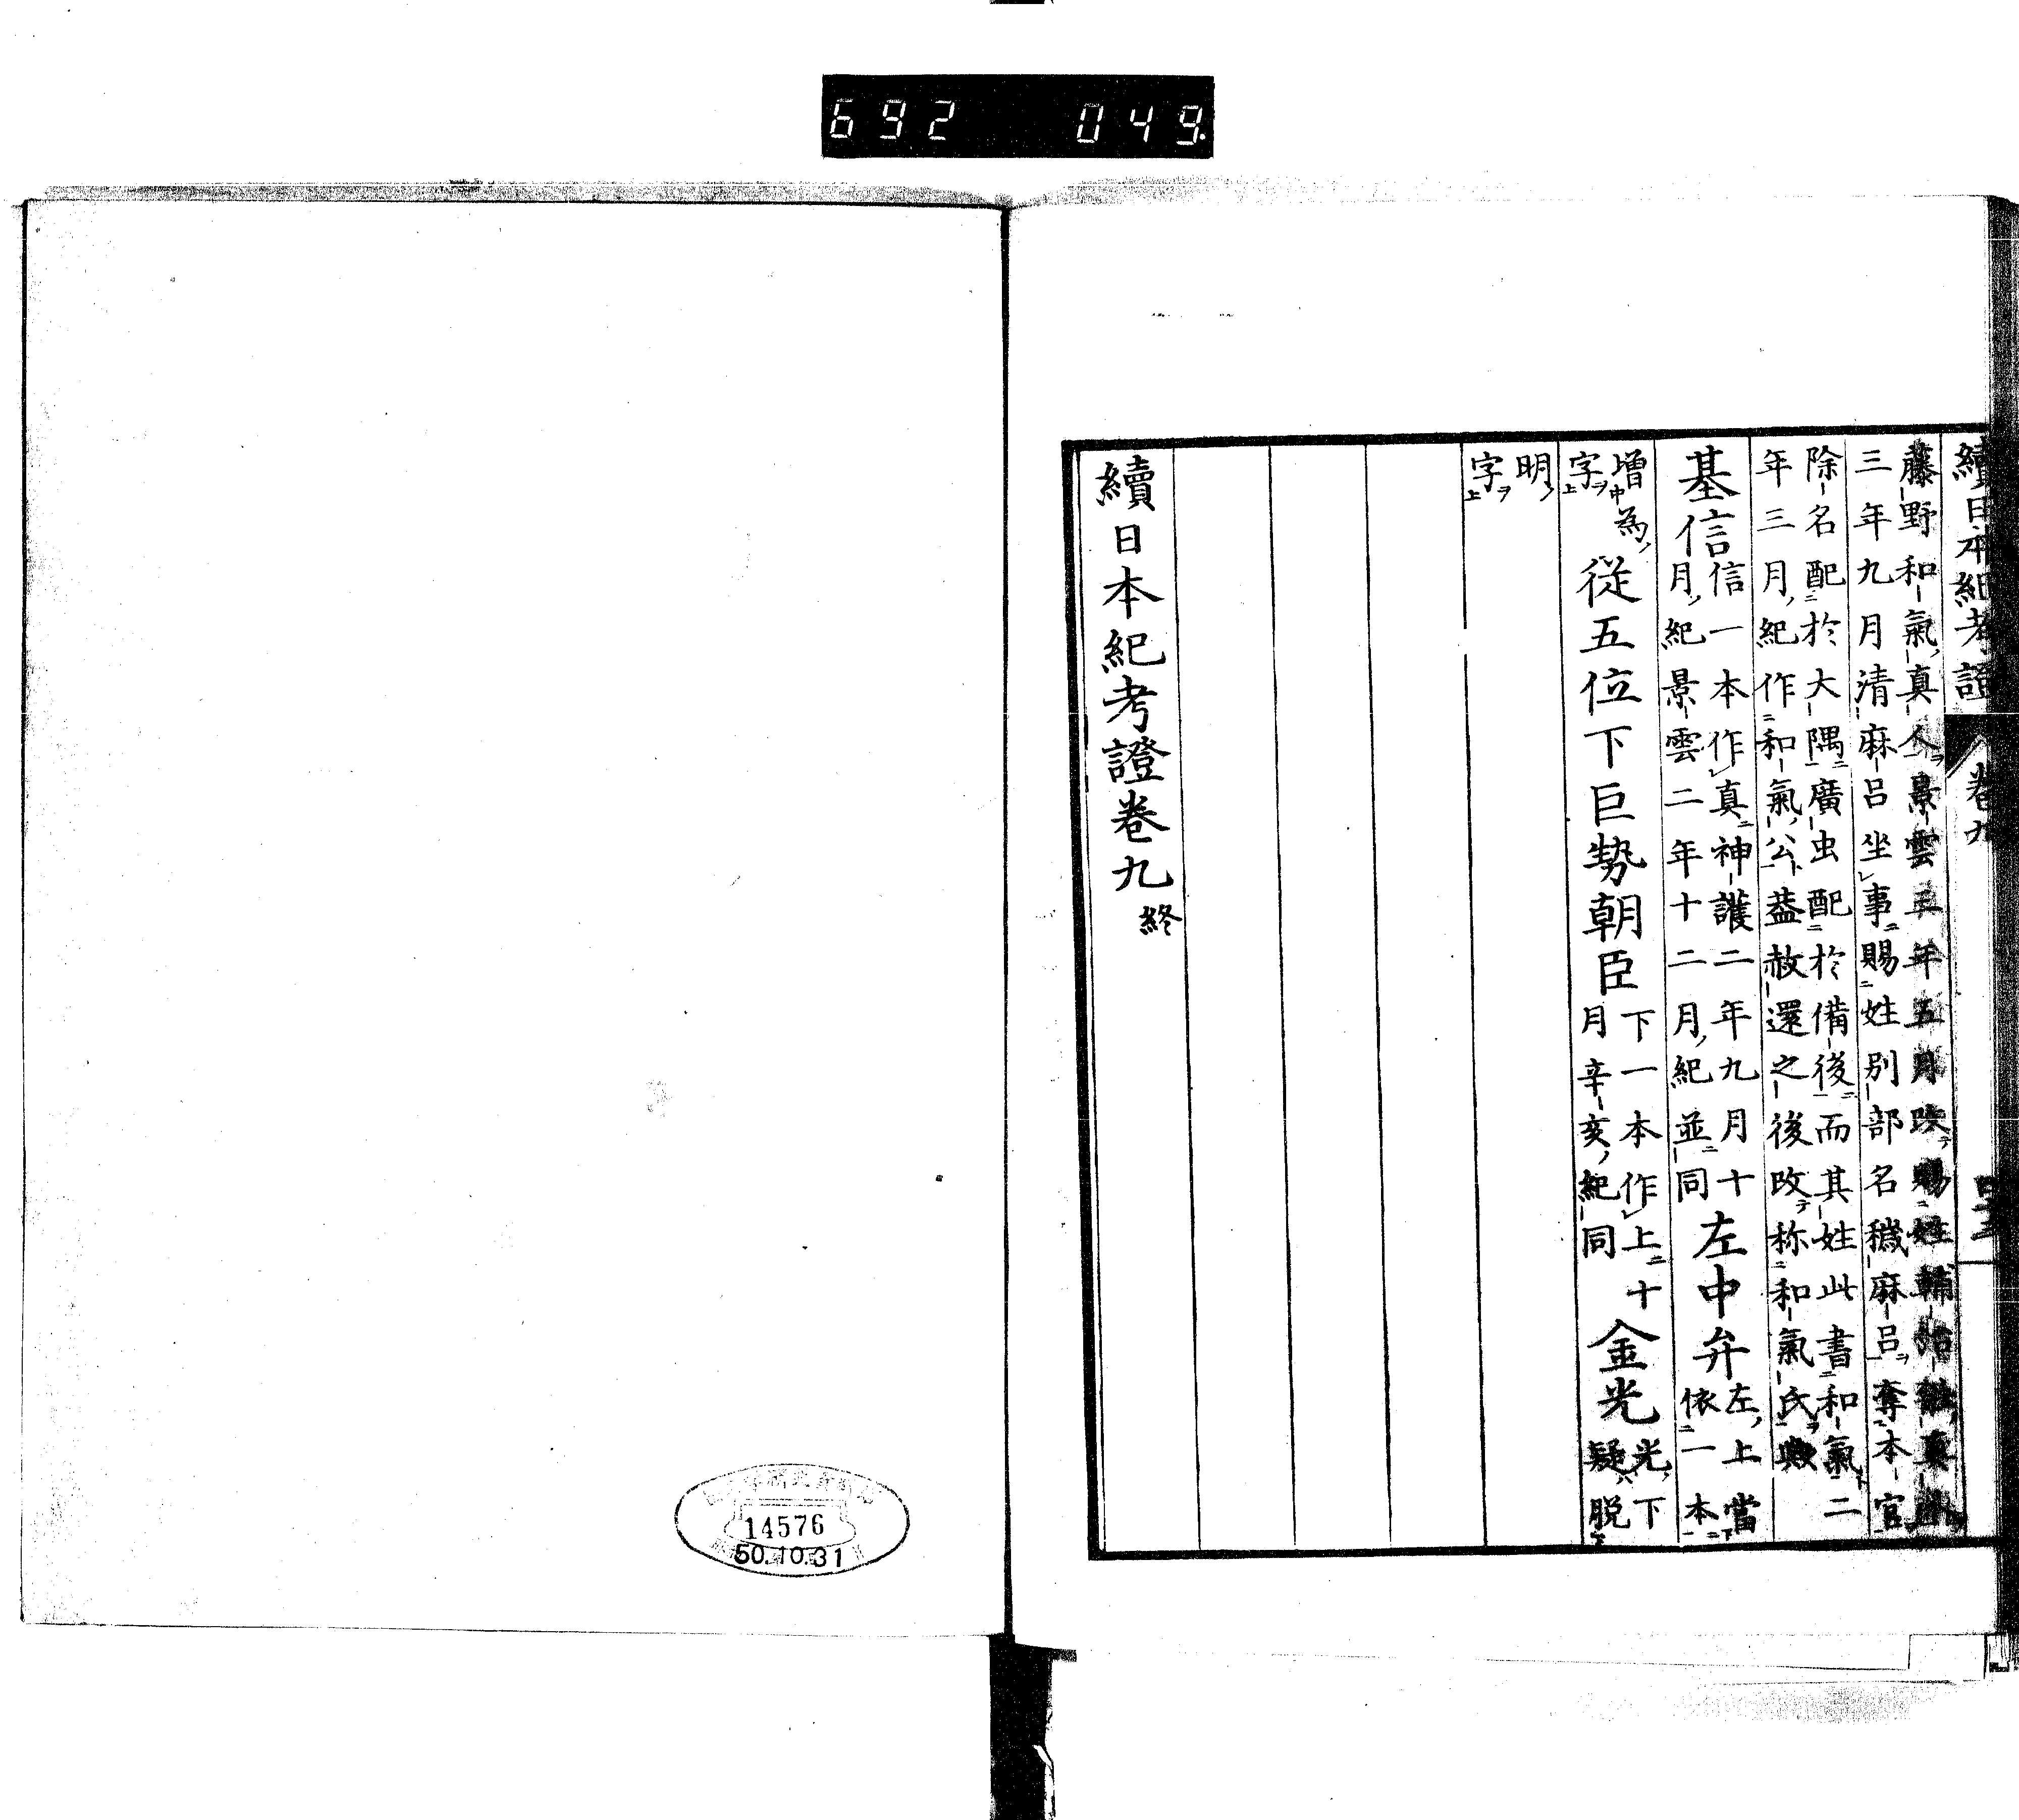 692 049.
續日本紀考證 卷九
藤野和氣真人景雲三年五月改賜姓輔治能真人
三年九月清麻呂坐事賜姓別部名穢麻呂奪本官
除名配於大隅廣虫配於備後而其姓此書和氣二
年三月紀作和氣公蓋赦還之後改称和氣氏與
基信 信一本作真神護二年九月十
月紀景雲二年十二月紀並同 左中弁 左上當
依一本
増中為
字 從五位下巨勢朝臣 下一本作上十
月辛亥紀同 金光 光下
疑脱
明
字
續日本紀考證卷九 終
14576
50.10.31